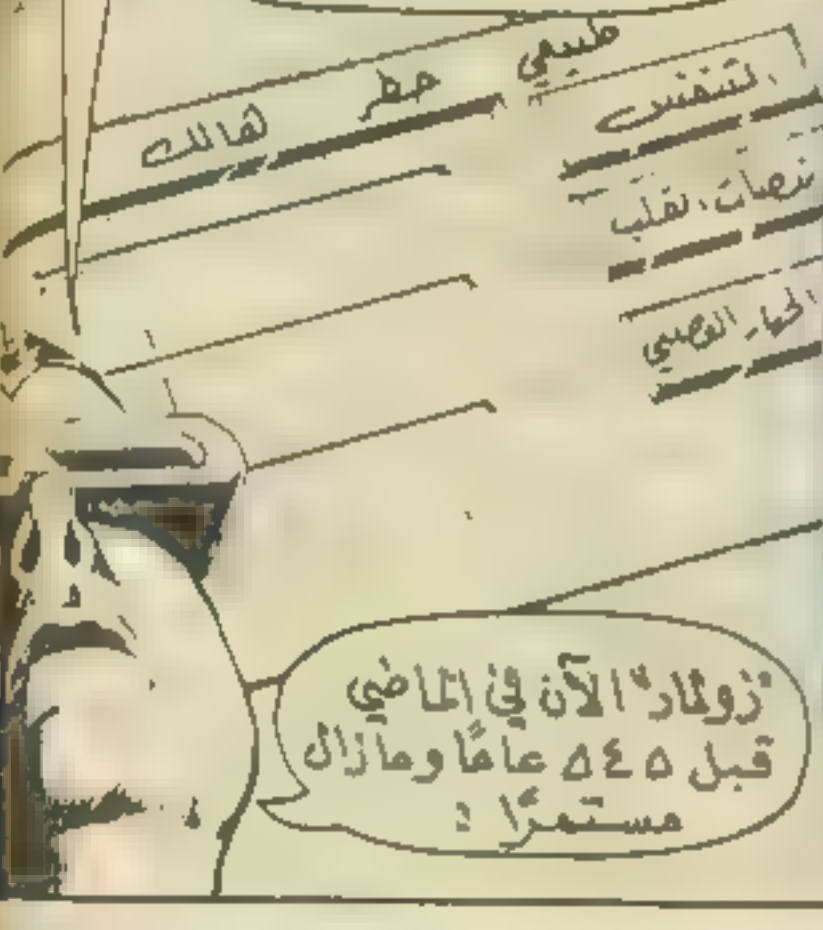 طبيعي خطر هالك
التنفس
نبضات القلب
الجهاز العصبي
"زولمار" الآن في الماضي
قبل ٥٤٥ عامًا ومازال
مستمرًا :